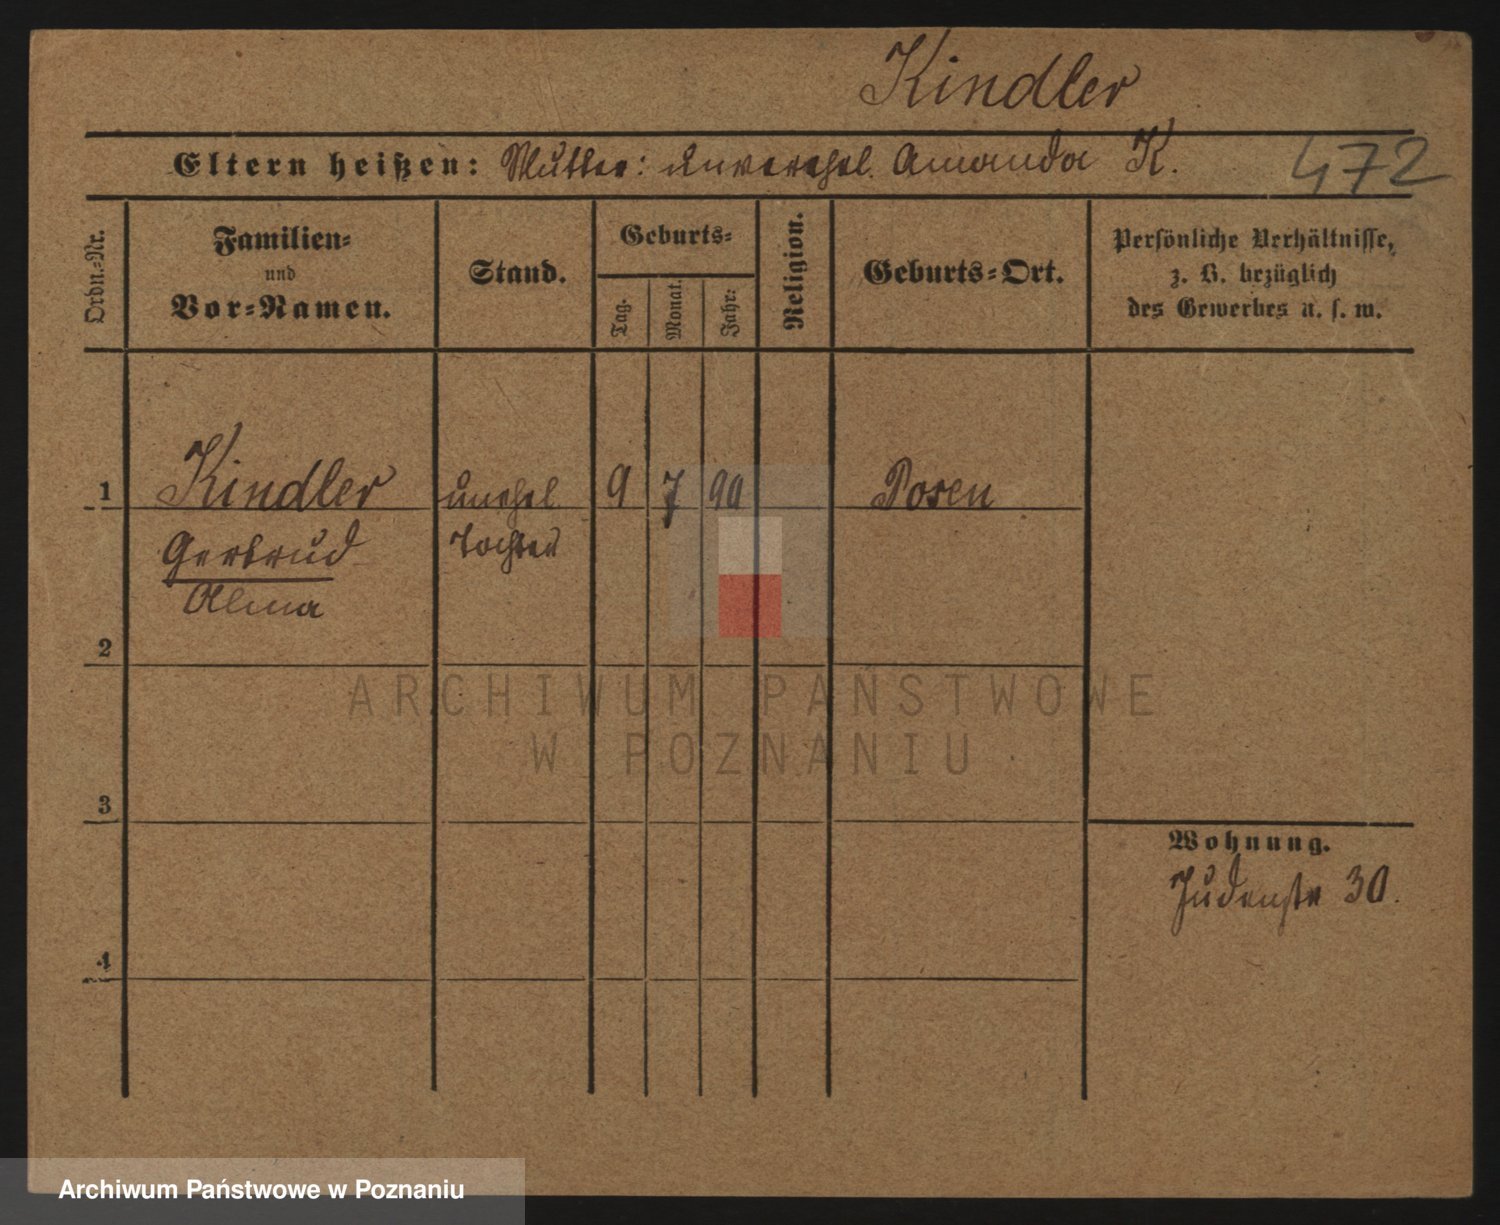 Kindler
Eltern heißen: Mutter: unverehel. Amanda K.
472
Ordn.-Nr.
Familien-
und
Vor-Namen.
Stand.
Geburts-
Tag.
Monat.
Jahr:
Religion.
Geburts-Ort.
Persönliche Verhältnisse,
z. B. bezüglich
des Gewerbes u. s. w.
1 Kindler unehel 9 7 90 Posen
Gertrud Tochter
Alma
2
ARCHIWUM PAŃSTWOWE
W POZNANIU
3
Wohnung.
Judenstr 30.
4
Archiwum Państwowe w Poznaniu